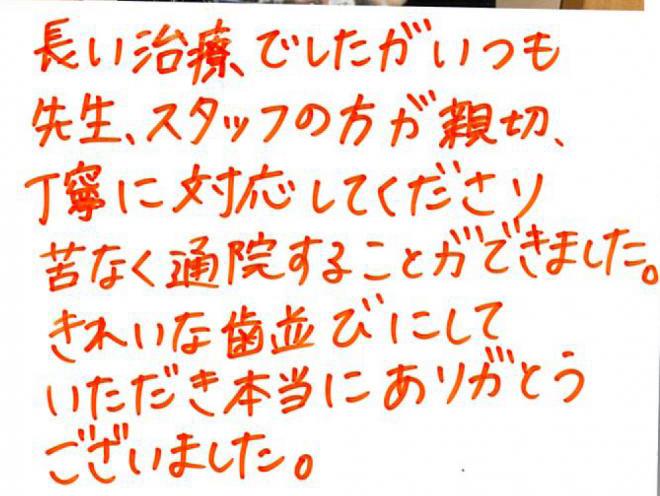 長い治療でしたがいつも
先生、スタッフの方が親切、
丁寧に対応してくださり
苦なく通院することができました。
きれいな歯並びにして
いただき本当にありがとう
ございました。